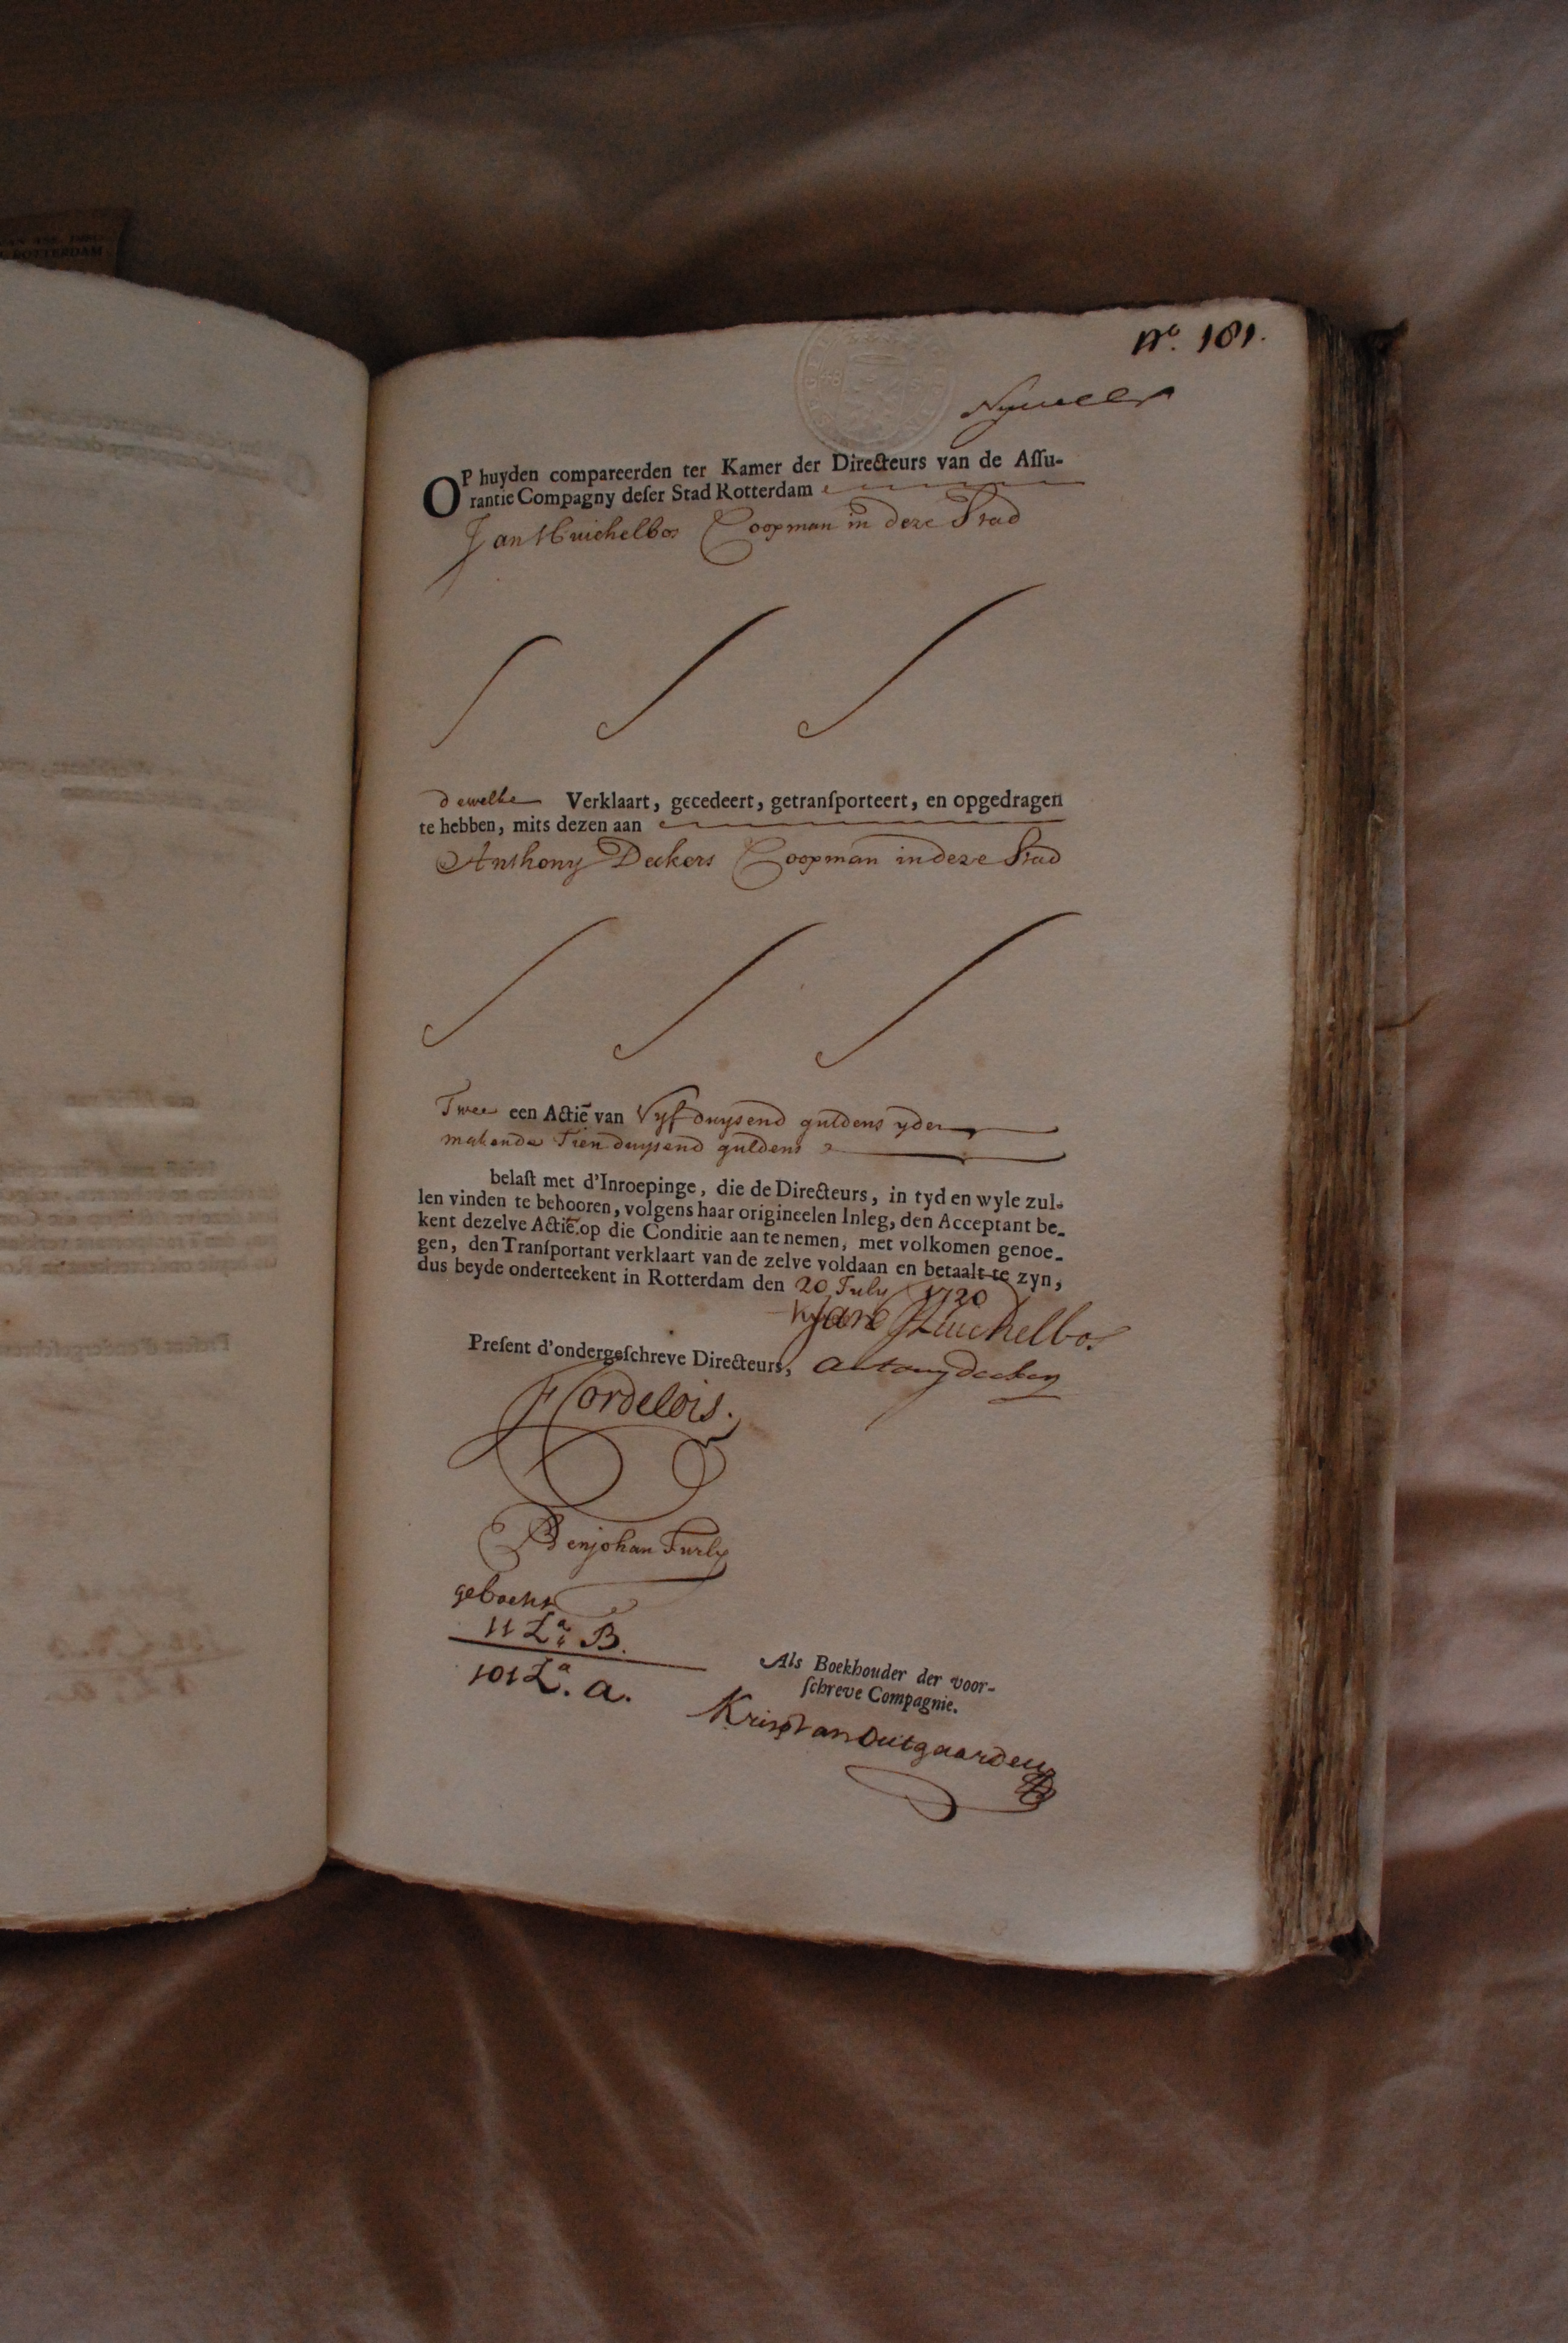 N.º 181.
OP huyden compareerden ter Kamer der Directeurs van de Aſſu-
rantie Compagny deſer Stad Rotterdam
Jan Huichelbos Coopman in deze Stad
dewelke Verklaart, gecedeert, getranſporteert, en opgedragen
te hebben, mits dezen aan
Anthony Deckers Coopman in deze Stad
Twee een Actiē van Vyf duysend guldens yder
makende Tien duysend guldens
belaſt met d'Inroepinge, die de Directeurs, in tyd en wyle zul-
len vinden te behooren, volgens haar origineelen Inleg, den Acceptant be-
kent dezelve Actiē op die Conditie aan te nemen, met volkomen genoe-
gen, den Tranſportant verklaart van de zelve voldaan en betaalt te zyn,
dus beyde onderteekent in Rotterdam den 20 July 1720
Jan Huichelbos
Preſent d'ondergeſchreve Directeurs, antony deckers
Cordelois.
Benjohan Furly
geboekt
11 Lª B.
101 Lª. a.
Als Boekhouder der voor-
ſchreve Compagnie.
Kris van Outgaarden